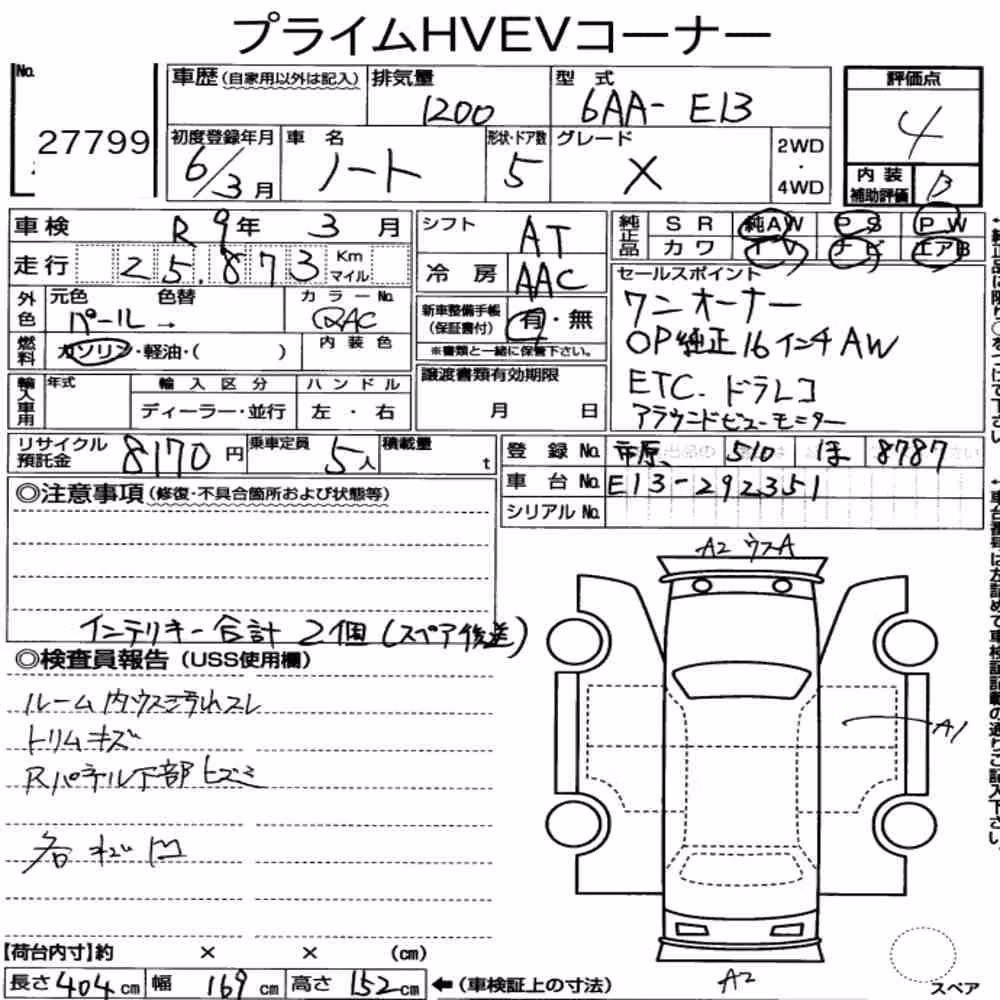 プライムHVEVコーナー
No. 27799
車歴（自家用以外は記入） 排気量 1200 型式 6AA-E13
初度登録年月 6/3月 車名 ノート 形状・ドア数 5 グレード X 2WD・4WD
評価点 4
内装補助評価 B
車検 R9年 3月
走行 25,873 Km マイル
シフト AT
冷房 AAC
純正品 SR 純AW PS PW
カワ TV ナビ エアB
外色 元色 パール→ 色替 カラーNo. QAC
燃料 ガソリン・軽油・（ ） 内装色
新車整備手帳（保証書付） 有・無
※書類と一緒に保管下さい。
セールスポイント
ワンオーナー
OP純正16インチAW
ETC. ドラレコ
アラウンドビューモニター
輸入車用 年式 輸入区分 ハンドル
ディーラー・並行 左・右
譲渡書類有効期限
月 日
リサイクル預託金 8170円 乗車定員 5人 積載量 t
登録No. 市原 510 ほ 8787
車台No. E13-292351
シリアルNo.
◎注意事項（修復・不具合箇所および状態等）
インテリキー合計 2個（スペア後送）
◎検査員報告（USS使用欄）
ルーム内ウス汚れスレ
トリムキズ
Rパネル下部ヒズミ
凹
A2 ウスA
A1
A2
スペア
【荷台内寸】約 × × (cm)
長さ 404 cm 幅 169 cm 高さ 152 cm ←（車検証上の寸法）